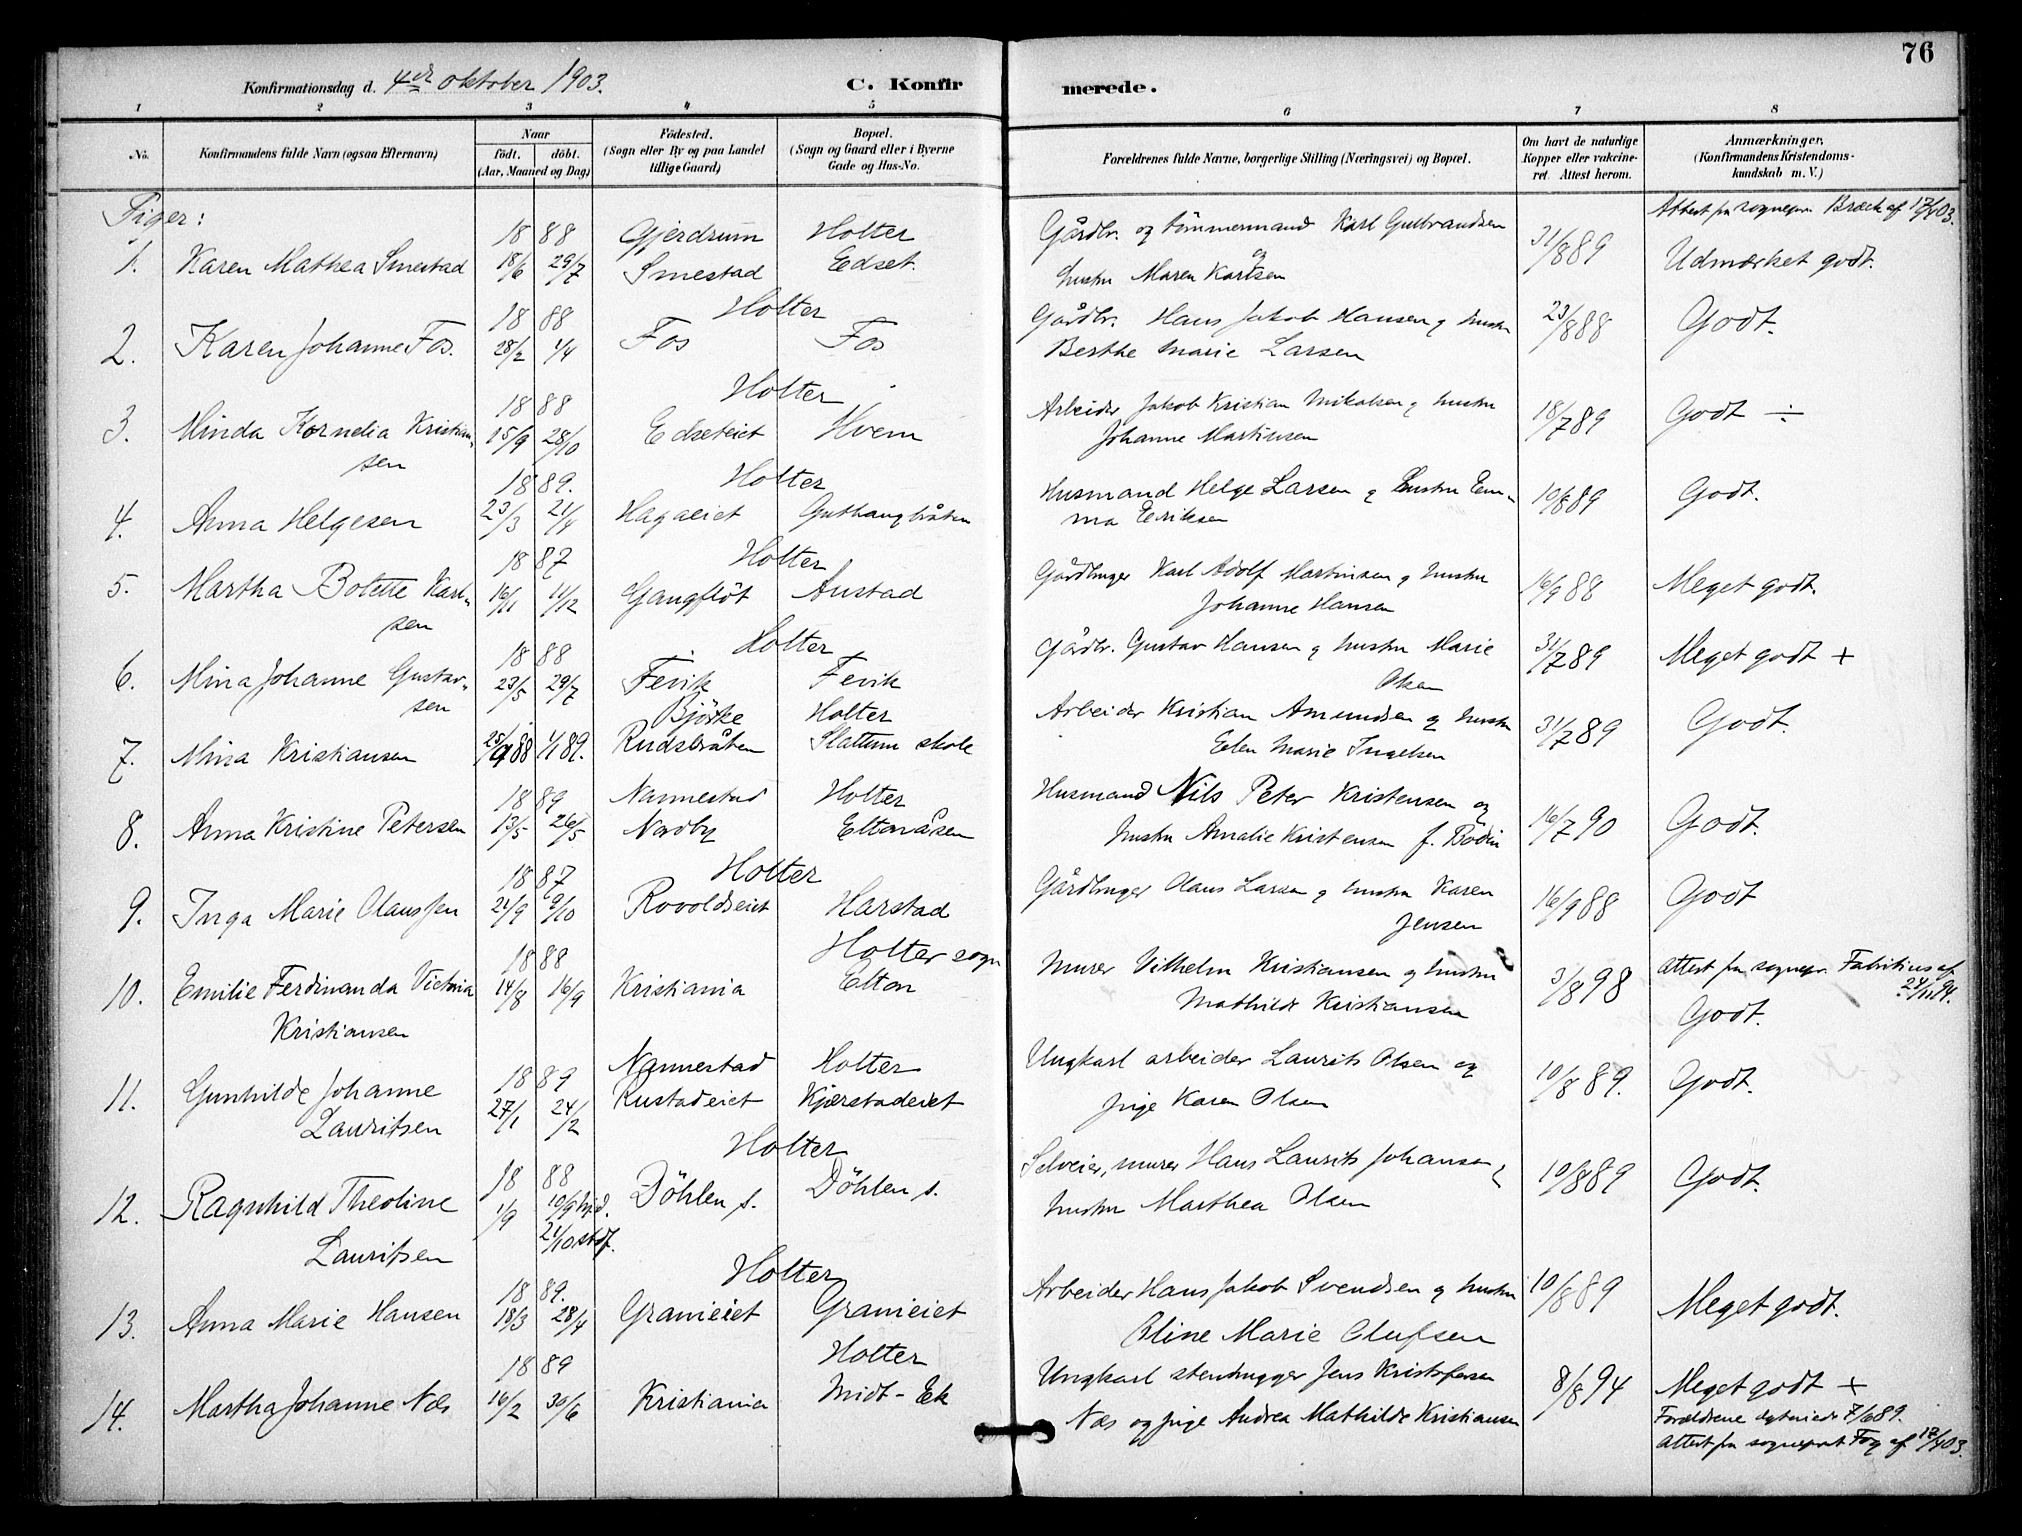 76
Konfirmationsdag d. 4de oktober 1903. C. Konfirmerede.
1 2 3 4 5 6 7 8
No. Konfirmandens fulde Navn (ogsaa Efternavn) Naar födt. döbt. (Aar, Maaned og Dag) Födested. (Sogn eller By og paa Landet tillige Gaard) Bopæl. (Sogn og Gaard eller i Byerne Gade og Hus-No. Forældrenes fulde Navne, borgerlige Stilling (Næringsvei) og Bopæl. Om havt de naturlige Kopper eller vakcineret. Attest herom. Anmærkninger. (Konfirmandens Kristendomskundskab m. V.)
Piger:
18 88 Gjerdrum Holter Gårdbr. og tömmermand Karl Gulbrandsen og Attest fra sognepr. Bræck af
1. Karen Mathea Smestad 18/6 29/7 Smestad Edset. hustru Maren Karlsen 31/8 89 Udmærket godt.
18 88 Holter Gårdbr. Hans Jakob Hansen og hustru
2. Karen Johanne Fos. 28/2 1/4 Fos Fos Berthe Marie Larsen 23/8 88 Godt.
18 88 Holter Arbeider Jakob Kristian Mikalsen og hustru
3. Minda Kornelia Kristiansen 15/9 28/10 Edseteiet Hvem Johanne Martinsen 18/7 89 Godt ÷
18 89. Holter Husmand Helge Larsen og hustru Emma
4. Anna Helgesen 23/3 21/4 Hagaeiet Eeriksen 10/8 89 Godt.
18 87 Holter Gårdbruger Karl Adolf Martinsen og hustru
5. Martha Bolette Karlsen 16/11 11/12 Gangflöt Austad Johanne Hansen 16/9 88 Meget godt.
18 88 Holter Gårdbr. Gustav Hansen og hustru Marie
6. Mina Johanne Gustavsen 23/5 29/7 Fevik Fevik Olsen 31/7 89 Meget godt +
Björke Holter Arbeider Kristian Amundsen og hustru
7. Mina Kristiansen 25/9 88 1/1 89. Rudsbråten Slattum skole Elen Marie Ingelsen 31/7 89 Godt.
18 89 Nannestad Holter Husmand Nils Peter Kristensen og
8. Anna Kristine Petersen 13/5 26/5 Nordby Eltonåsen hustru Amalie Kristensen f. Bodin 16/7 90 Godt.
18 87 Holter Gårdbruger Claus Larsen og hustru Karen
9. Inga Marie Claussen 21/9 9/10 Rovoldseiet Harstad Jensen 16/9 88 Godt
18 88 Holter sogn Murer Vilhelm Kristiansen og hustru Attest fra sognepr. Fabritius af
10. Emilie Ferdinanda Victoria Kristiansen 14/8 16/9 Kristiania Elton Mathilde Kristiansen 3/8 98 24/11 94. Godt.
18 89 Nannestad Holter Ungkarl arbeider Laurits Olsen og
11. Gunhilde Johanne Lauritsen 27/1 24/2 Rustadeiet Kjærstadeiet pige Karen Olsen 10/8 89. Godt.
18 88 Holter Selveier, murer Hans Laurits Johansen og
12. Ragnhild Theoline Lauritsen 1/9 10/9 hjd. 21/10 stdf. Döhlen s. Döhlen s. hustru Marthea Olsen 10/8 89 Godt.
18 89. Holter Arbeider Hans Jakob Svendsen og hustru
13. Anna Marie Hansen 18/3 28/4 Granieiet Granieiet Oline Marie Olufsen 10/8 89 Meget godt.
18 89 Holter Ungkarl stenhugger Jens Kristofersen
14. Martha Johanne Næs 16/2 30/6 Kristiania Midt-Ek Næs og pige Andrea Mathilde Kristiansen 8/8 94 Meget godt +
Forældrene 7/6 89.
Attest fra sogneprest Fog af